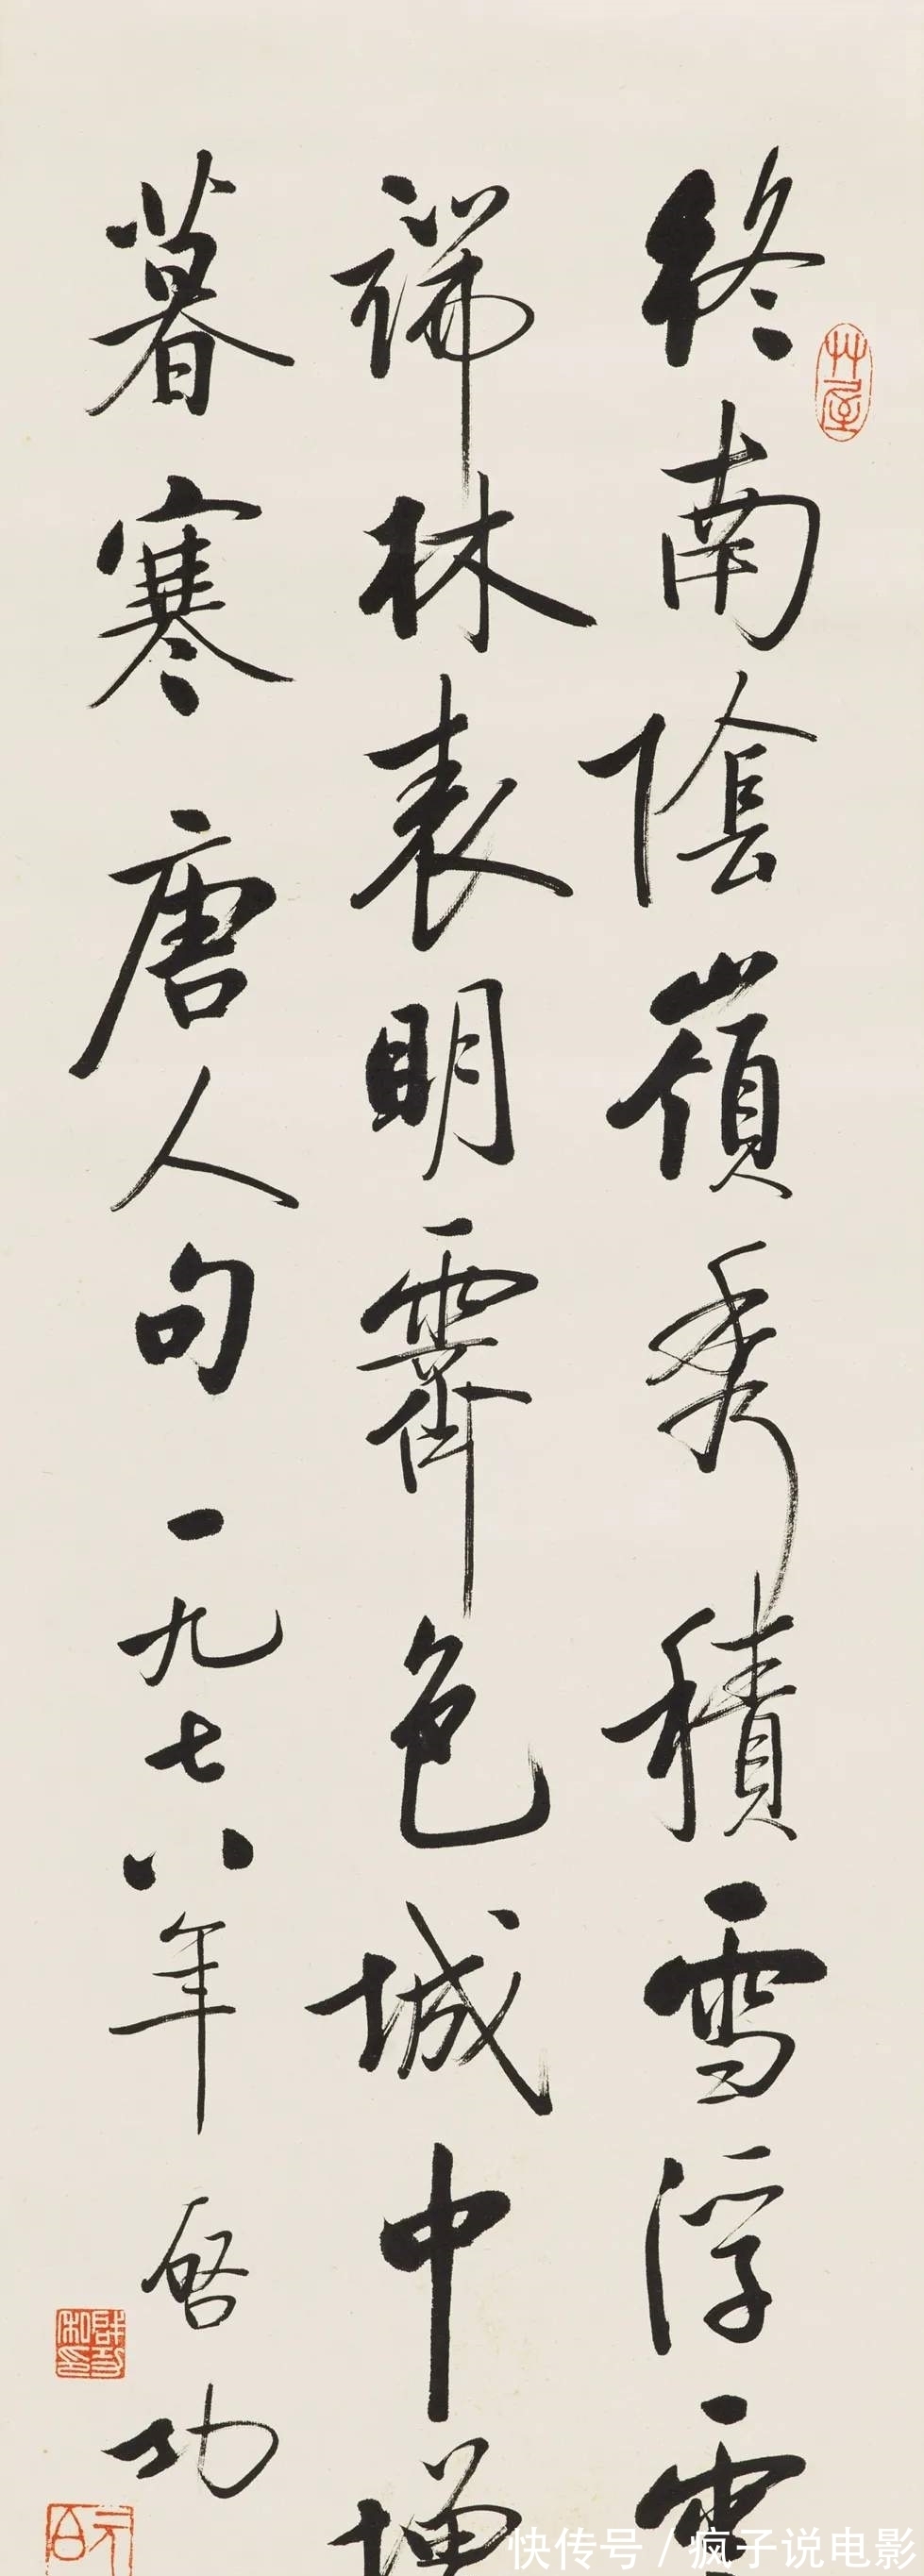 終南陰嶺秀積雪浮雲
端林表明霽色城中增
暮寒唐人句一九七八年啓功
艸屋
啓功私印
元白
快传号 / 疯子说电影